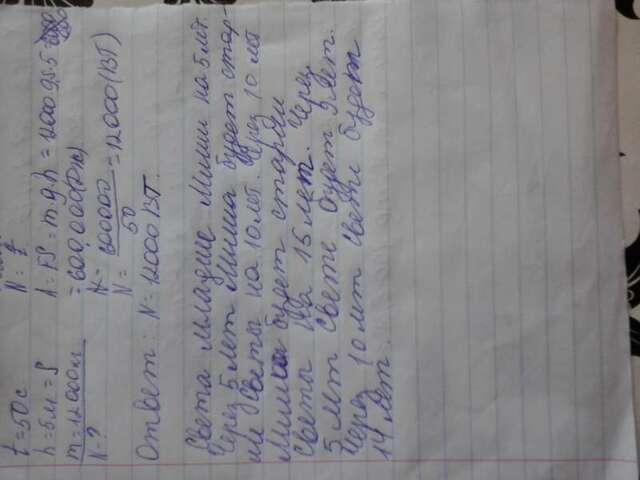 t=50с N= t
h=5м=S A=FS=m.g.h=12000.9,8.5=
m=12000кг =600,000(Дж)
N-? N=
N= 600000/50 =12000(ВТ)
Ответ: N=12000ВТ.
Света младше Миши на 5 лет.
Через 5 лет Миша будет стар-
ше Светы на 10 лет. Через 10 лет
Миша будет старше
Светы на 15 лет. Через
5 лет Свете будет 9 лет.
Через 10 лет Свете будет
14 лет.